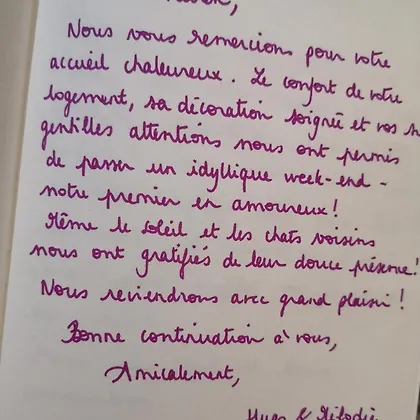 Nous vous remercions pour votre
accueil chaleureux. Le confort de votre
logement, sa décoration soignée et vos
gentilles attentions nous ont permis
de passer un idyllique week-end -
notre premier en amoureux !
Même le soleil et les chats voisins
nous ont gratifiés de leur douce présence !
Nous reviendrons avec grand plaisir !
Bonne continuation à vous,
Amicalement,